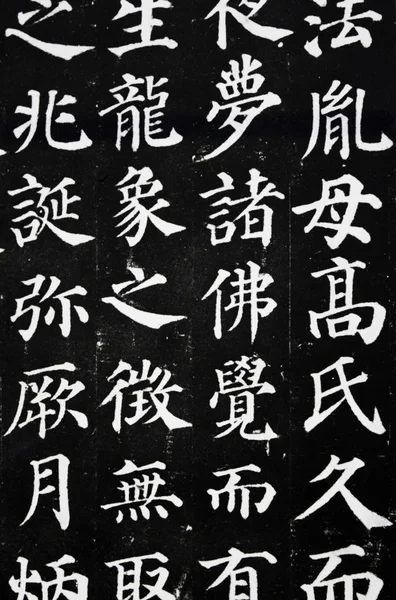 法胤母髙氏久而
夜夢諸佛覺而有
生龍象之徵無取
之兆誕弥厥月炳